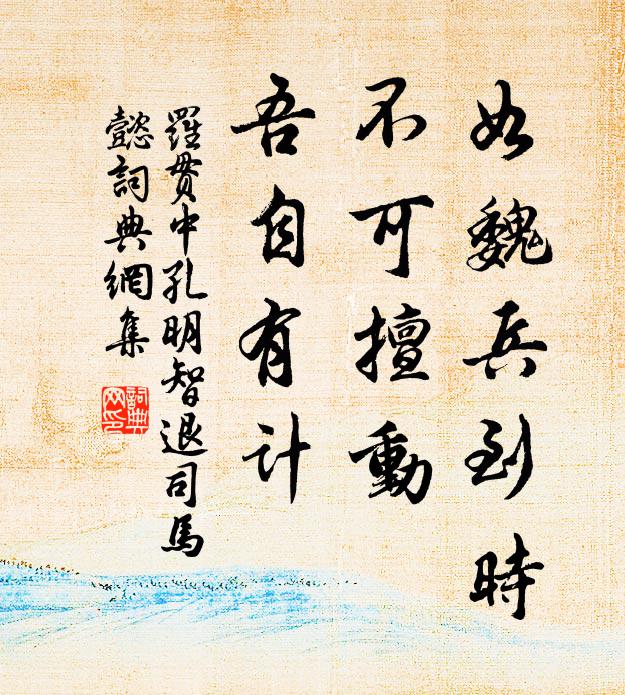 如魏兵到時
不可擅動
吾自有计
羅貫中孔明智退司馬
懿詞典網集
詞典
网印